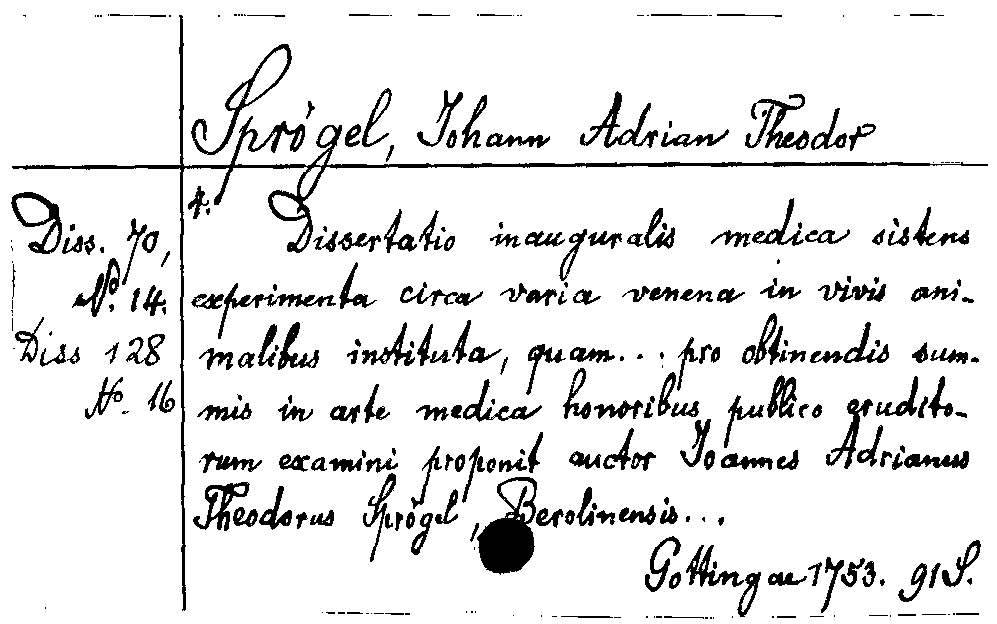 Sprögel, Johann Adrian Theodor
4.
Diss. 70,
No. 14.
Diss 128
No. 16
Dissertatio inauguralis medica sistens
experimenta circa varia venena in vivis ani-
malibus instituta, quam... pro obtinendis sum-
mis in arte medica honoribus publico erudito-
rum examini proponit auctor Joannes Adrianus
Theodorus Sprögel, Berolinensis...
Gottingae 1753. 91 S.